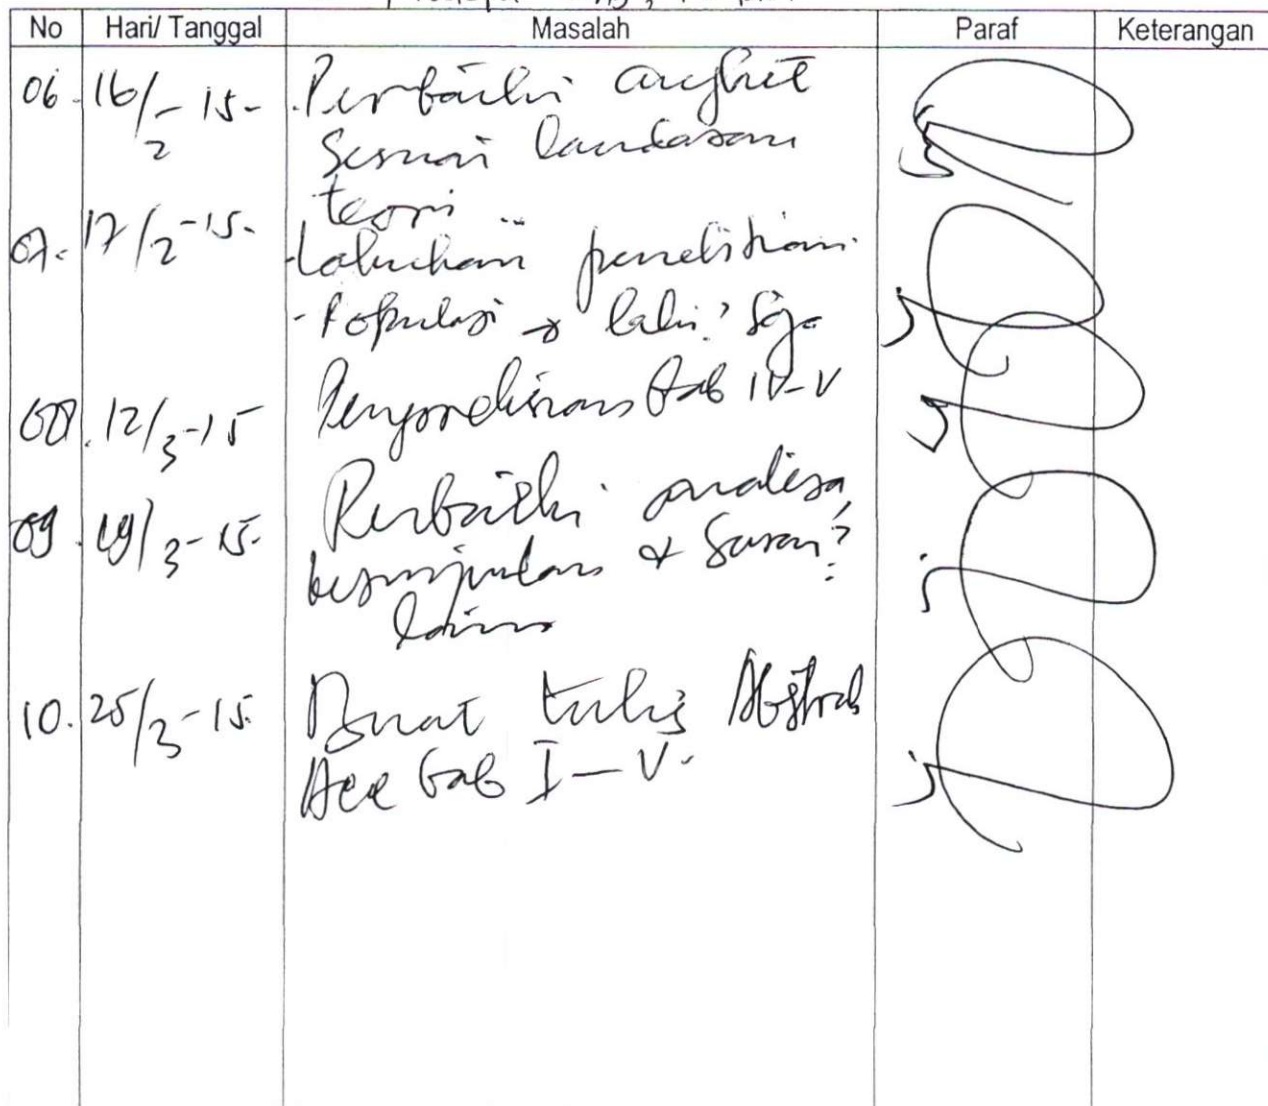 No Hari/ Tanggal Masalah Paraf Keterangan
06. 16/2-15- Perbaiki angket
sesuai landasan
teori
07. 17/2-15- - Lakukan penelitian
- Populasi → laki² saja
08. 12/3-15 Bab IV-V
09. 19/3-15- Perbaiki analisa,
kesimpulan & saran²
10. 25/3-15. Buat tulis Abstrak
Acc bab I-V.